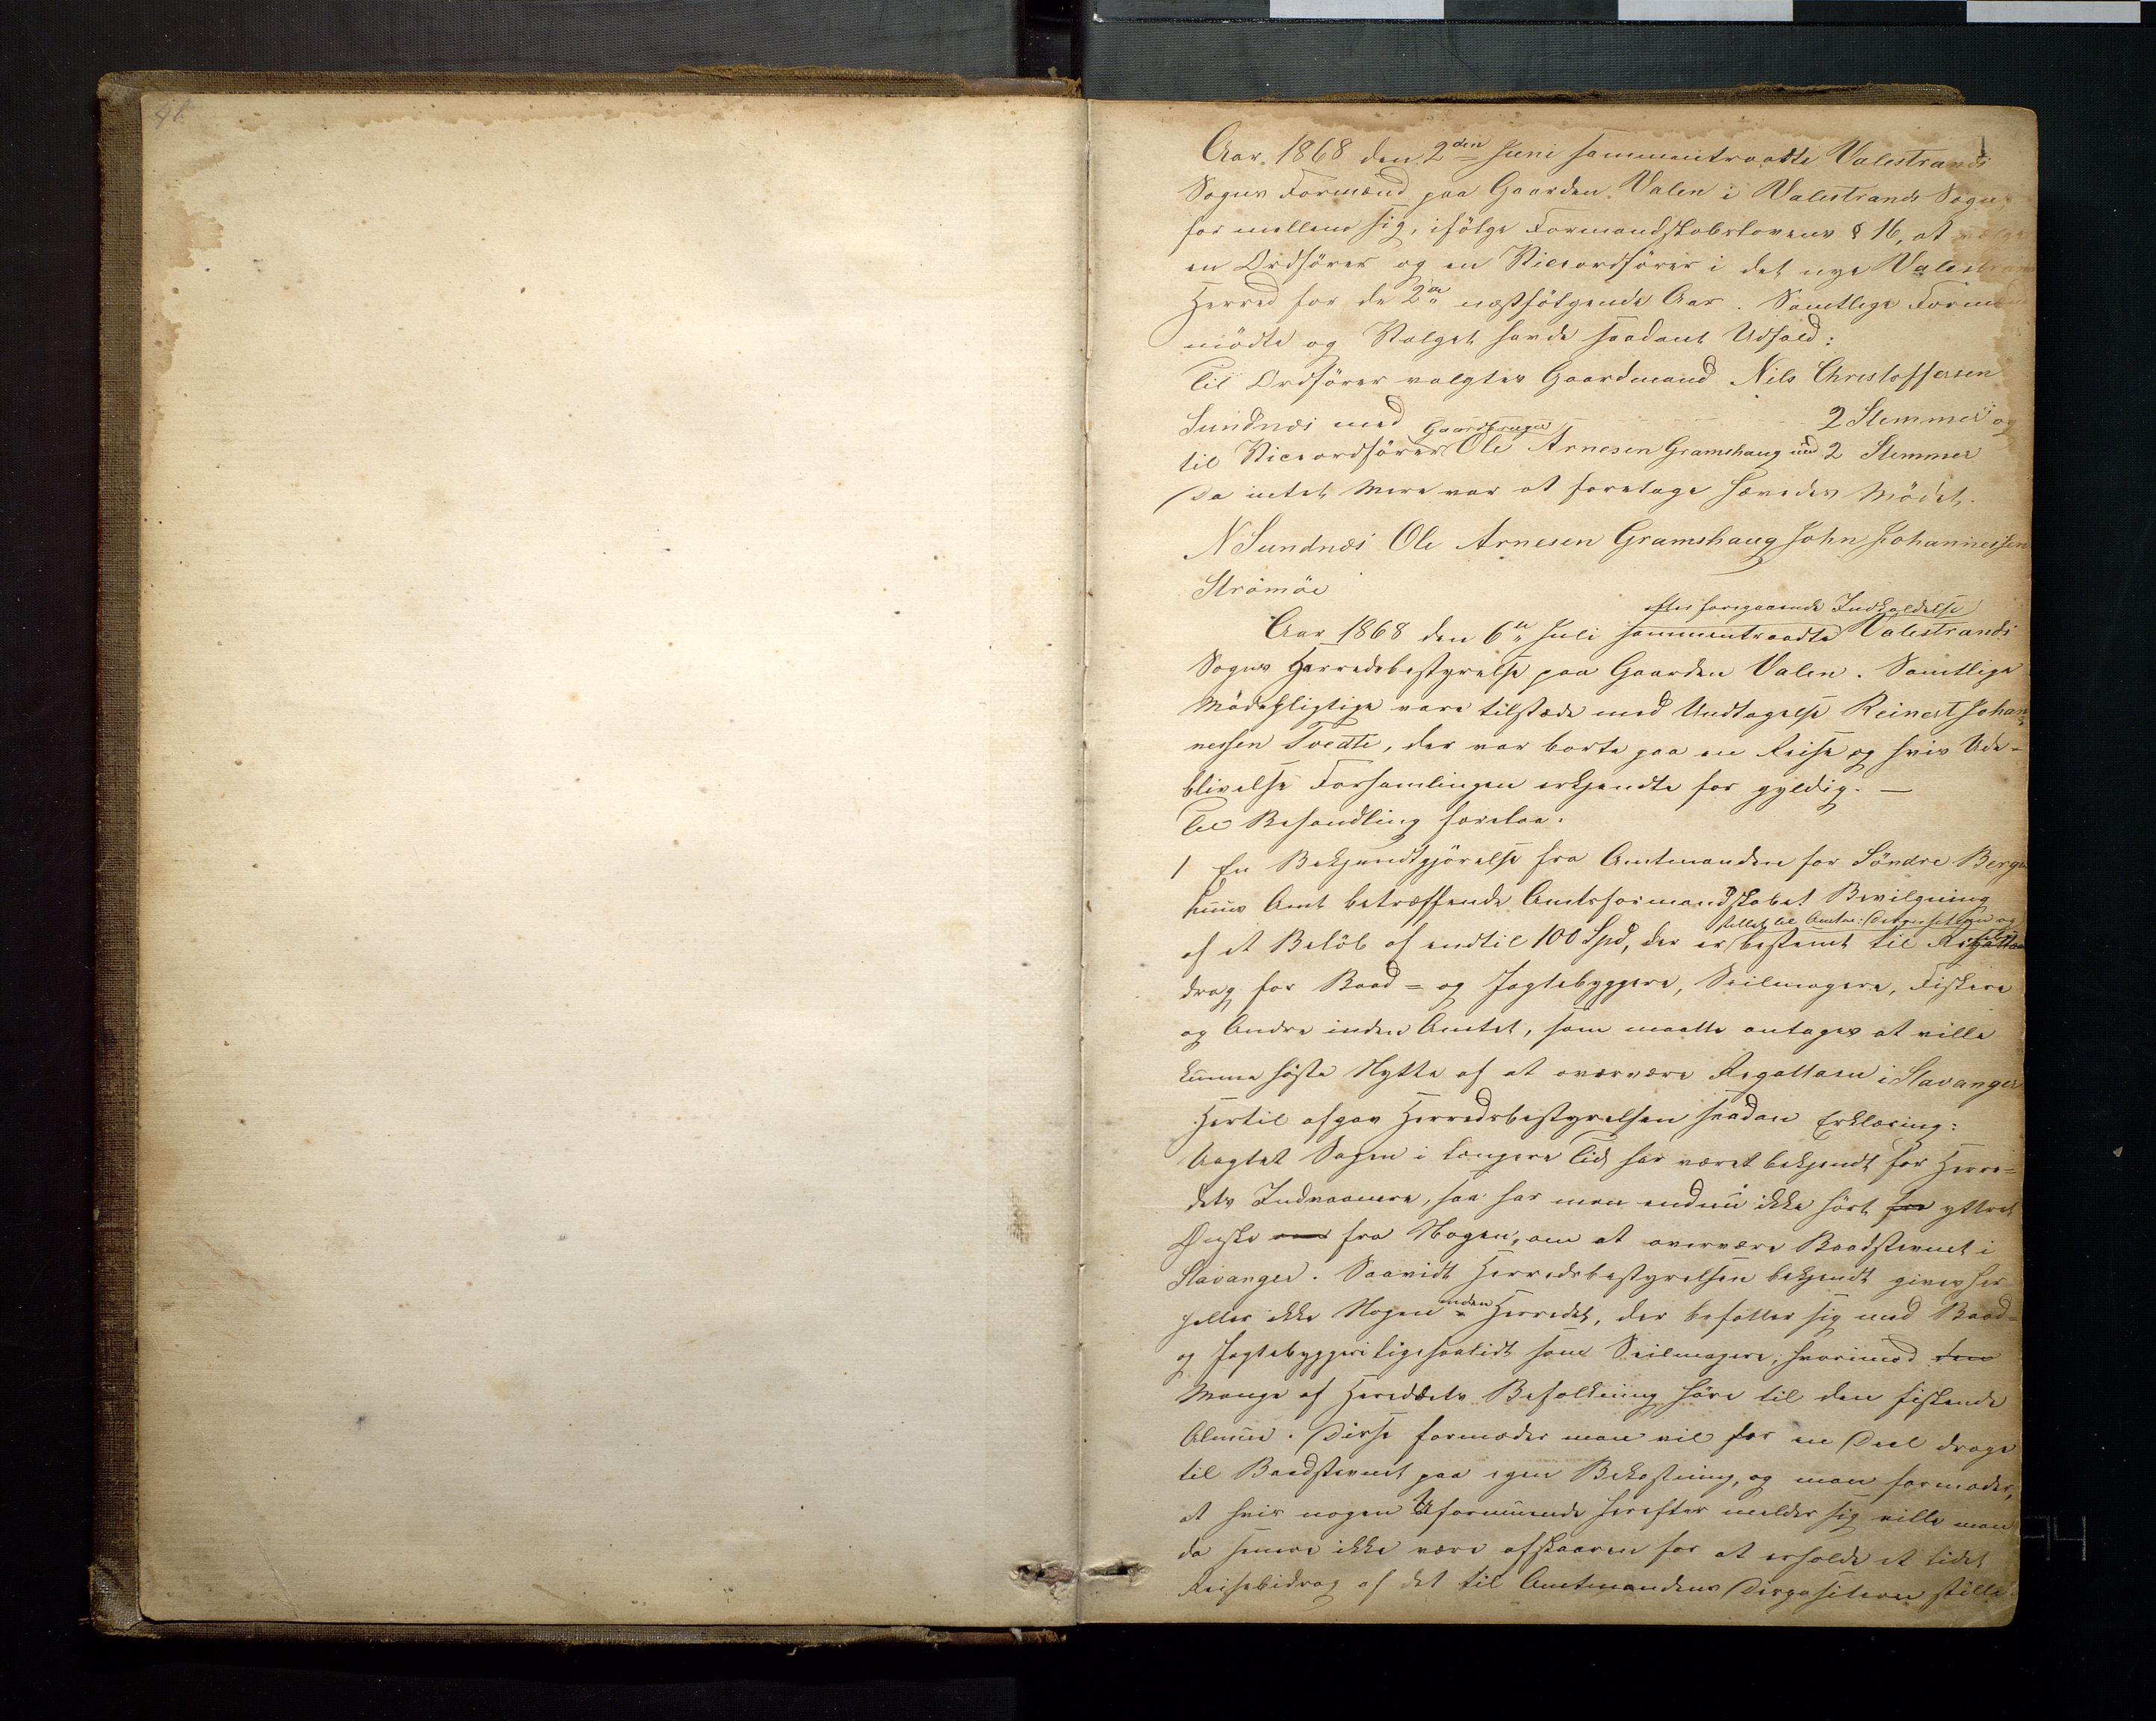 Aar 1868 den 2den Juni sammentraadte Valestrands
Sogns Formænd paa Gaarden Valen i Valestrands Sogn,
for mellem sig, ifölge Formandskabslovens § 16, at vælge
en Ordförer og en Viceordförer i det nye Valestrands
Herred for de 2de næstfölgende Aar. Samtlige Formænd
mödte og Valget havde saadant Udfald:
Til Ordförer valgtes Gaardmand Nils Christoffersen
Sundnæs med 2 Stemmer og
til Viceordförer Gaardbruger Ole Arnesen Gramshaug med 2 Stemmer
Da intet Mere var at foretage hævedes Mödet.
N Sundnæs Ole Arnesen Gramshaug John Johannessen
Strömöe
efter foregaaende Indkaldelse
Aar 1868 den 6te Juli sammentraadte Valestrands
Sogns Herredsbestyrelse paa Gaarden Valen. Samtlige
Mödepligtige vare tilstæde med Undtagelse Reinert Johan-
nessen Tvedte, der var borte paa en Reise og hvis Ude-
blivelse Forsamlingen erkjendte for gyldig. —
Til Behandling forelaa:
1 En Bekjendtgjörelse fra Amtmanden for Söndre Bergen
huus Amt betræffende Amtsformandskabet Bevilgning
stillet til Amtm: Disposition og
af et Belöb af indtil 100 Spd, der er bestemt til
drag for Baad- og Jagtebyggere, Seilmagere, Fiskere
og Andre inden Amtet, som maatte antages at ville
kunne höste Nytte af at overvære Regattaen i Stavanger
Hertil afgav Herredsbestyrelsen saadan Erklæring:
Uagtet Sagen i længere Tid har været bekjendt for Herre-
dets Indvaanere, saa har man endnu ikke hört yttret
Önske fra Nogen, om at overvære Baadstevnet i
Stavanger. Saavidt Herredsbestyrelsen bekjendt gives her
heller ikke Nogen inden Herredet, der befatter sig med Baad-
og Jagtebyggeri ligesaalidt som Seilmagere, hvorimod
Mange af Heredets Befolkning höre til den fiskende
Almue. Disse formoder man vil for en Deel drage
til Baadstevnet paa egen Bekostning, og man formoder,
at hvis nogen Uformuende herefter melder sig ville man
da senere ikke være afskaaren for at erholde et lidet
Reisebidrag af det til Amtmandens Disposition stille